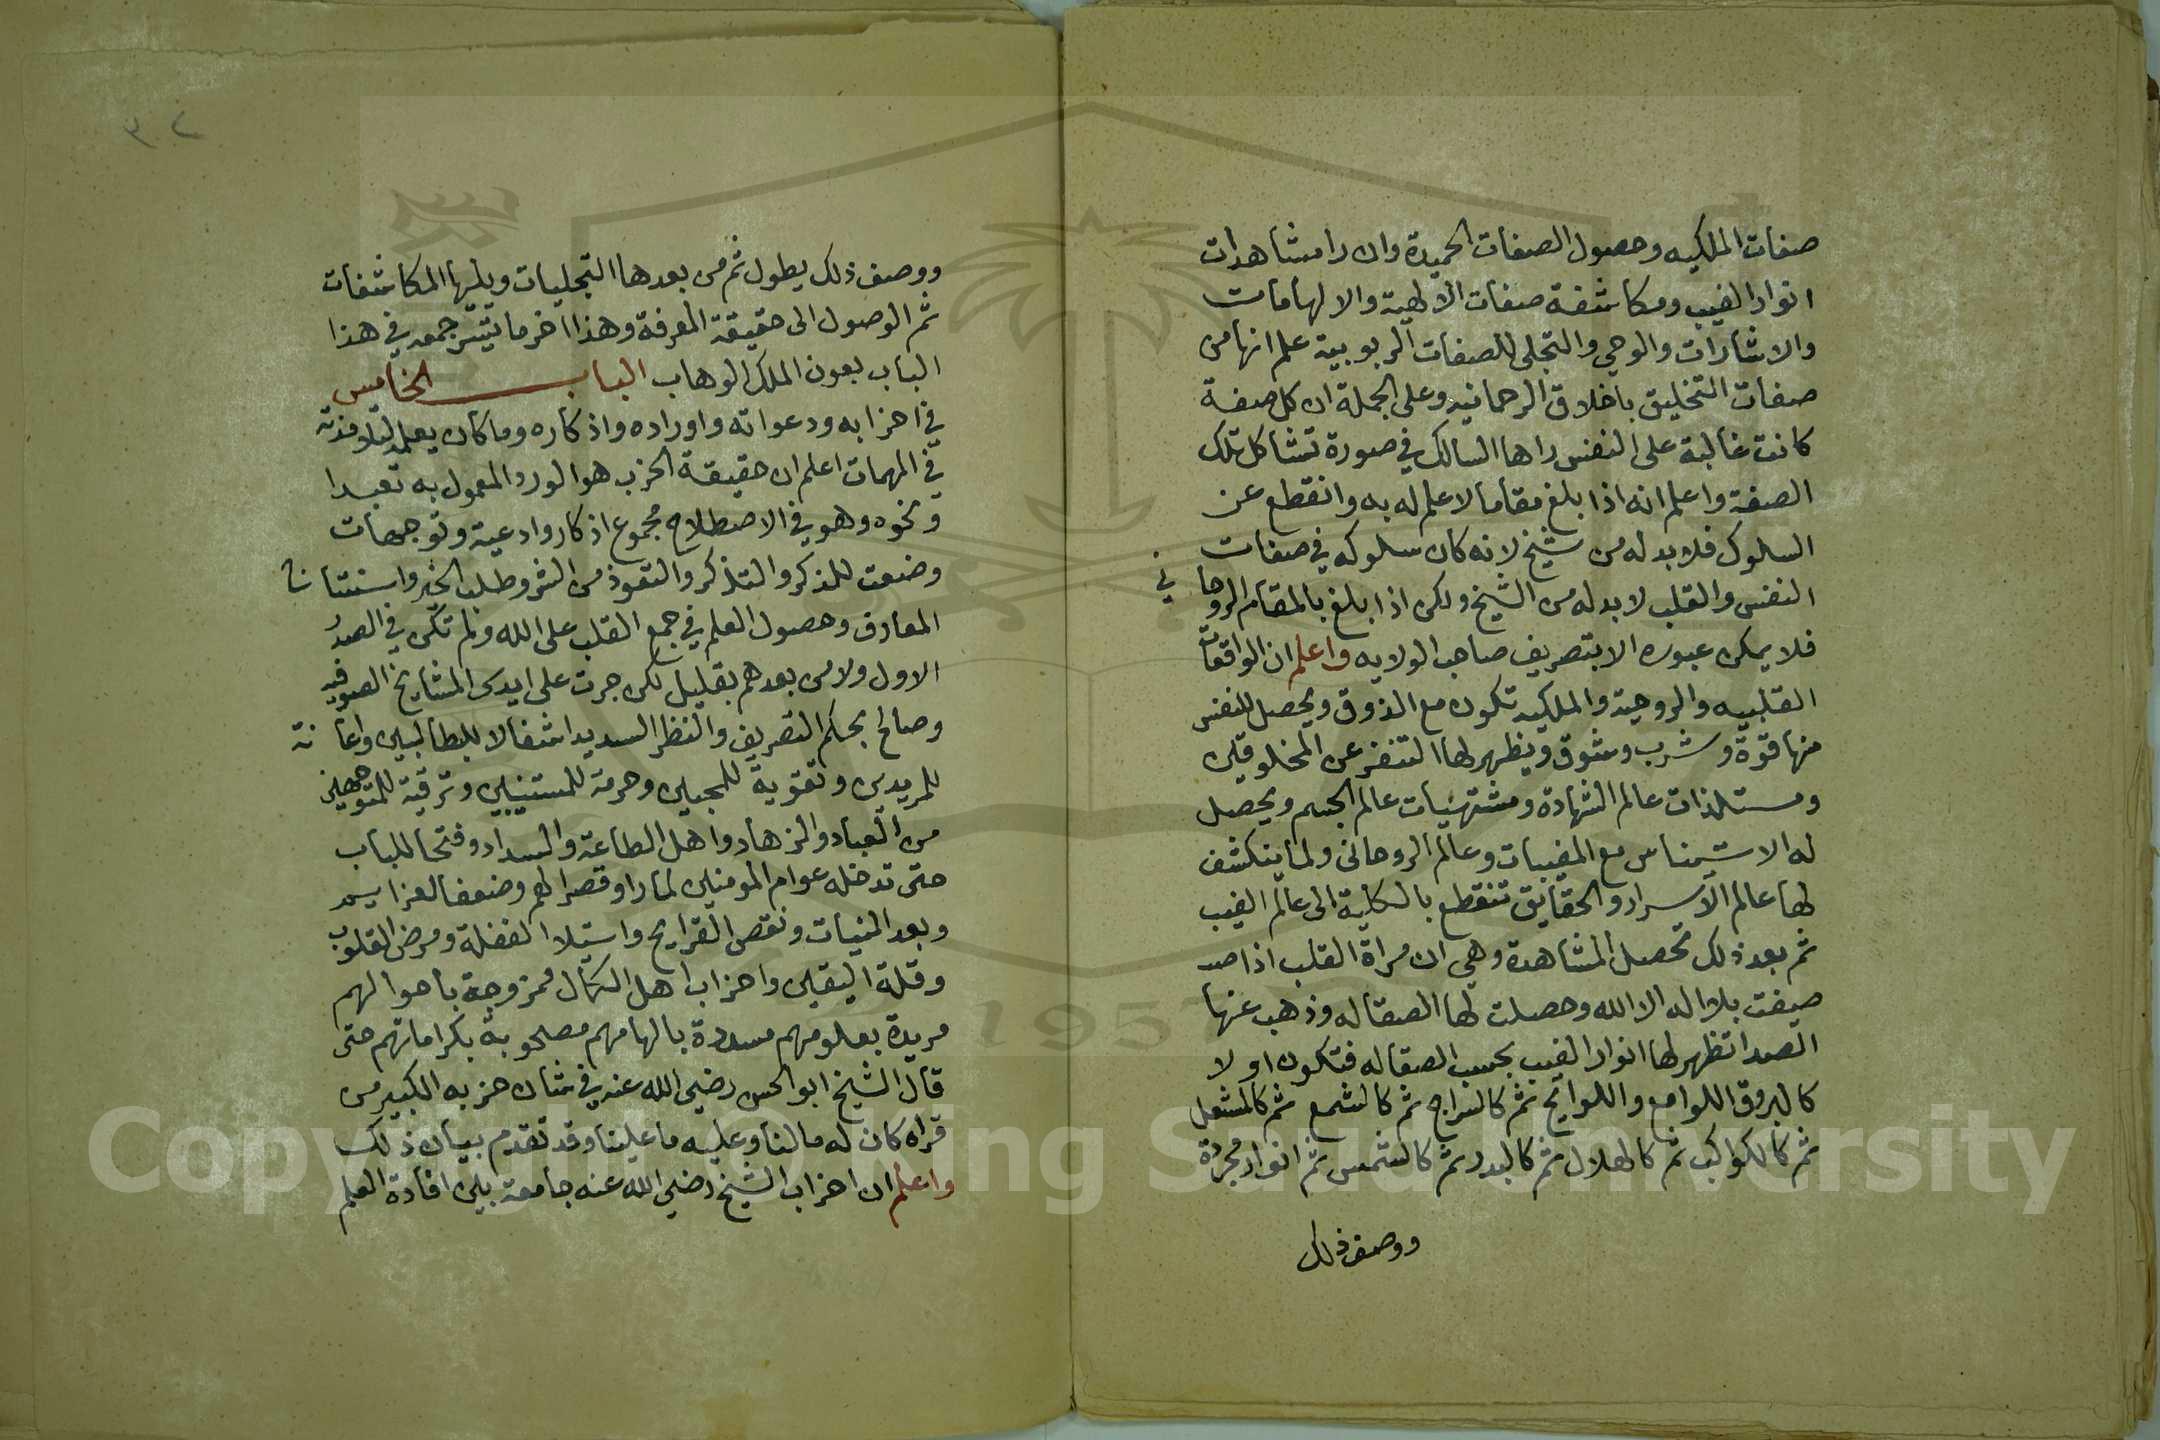 صفات الملكيه وحصول الصفات الحميدة وان را مشاهدات
انوار الغيب ومكاشفة صفات الالهية والالهامات
والاشارات والوحي والتجلى للصفات الربوبية علم انها من
صفات التخليق باخلاق الرحمانيه وعلى الجملة ان كل صفة
كانت غالبة على النفس راها السالك في صورة تشاكل تلك
الصفة واعلم انه اذا بلغ مقاما لا علم له به وانقطع عن
السلوك فلا بد له من شيخ لانه كان سلوكه في صفات
النفس والقلب لا بد له من الشيخ ولكن اذا بلغ بالمقام الروحاني
فلا يمكن عبوره الا بتصريف صاحب الولايه واعلم ان الواقعات
القلبيه والروحية والملكيه تكون مع الذوق ويحصل للنفس
منها قوة وشرب وشوق ويظهر لها التنفز عن المخلوقين
ومستلذات عالم الشهادة ومشتهيات عالم الجسم ويحصل
له الاستيناس مع المغيبات وعالم الروحانى ولما ينكشف
لها عالم الاسرار والحقايق تنقطع بالكلية الى عالم الغيب
ثم بعد ذلك تحصل المشاهدة وهي ان مراة القلب اذا صـ
صيفت بلا اله الا الله وحصلت لها الصقاله وذهب عنها
الصدا تظهر لها انوار الغيب بحسب الصقاله فتكون اولا
كالبروق اللوامع واللوايح ثم كالسراج ثم كالشمع ثم كالمشعل
ثم كالكواكب ثم كالهلال ثم كالبدر ثم كالشمس ثم انوار مجردة
ووصف ذلك
ووصف ذلك يطول ثم من بعدها التجليات ويليها المكاشفات
ثم الوصول الى حقيقة المعرفة وهذا اخر ما تيسر جمعه في هذا
الباب بعون الملك الوهاب الباب الخامس
في احزابه ودعواته واوراده واذكاره وما كان يعمله لتلامذته
في المهمات اعلم ان حقيقة الحزب هو الورد المعمول به تعبدا
ونحوه وهو في الاصطلاح مجموع اذكار وادعية وتوجهات
وضعت للذكر والتذكر والتعوذ من الشر وطلب الخير واستنتاج
المعارف وحصول العلم في جمع القلب على الله ولم تكن في الصدر
الاول ولا من بعدهم بقليل لكن جرت على ايدى المشايخ الصوفيه
وصالح بحكم التصريف والنظر السديد اشغالا للبطالين واعانة
للمريدين وتقوية للمحبين وحرمة للمنتسبين وترقية للمتوجهين
من العباد والزهاد واهل الطاعة والسداد وفتحا للباب
حتى تدخله عوام المومنين لما راو قصر الهم وضعف العزايم
وبعد المنيات ونقص القرايح واستيلا الغفلة ومرض القلوب
وقلة اليقين واحزاب اهل الكمال ممزوجة باحوالهم
مريدة بعلومهم مسددة بالهامهم مصحوبة بكراماتهم حتى
قال الشيخ ابو الحسن رضي الله عنه في شان حزبه الكبير من
قراه كان له ما لنا وعليه ما علينا وقد تقدم بيان ذلك
واعلم ان احزاب الشيخ رضي الله عنه جامعة بين افادة العلم
Copyright © King Saud University
1957